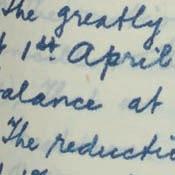 The greatly
1st April
alance at
The reductio